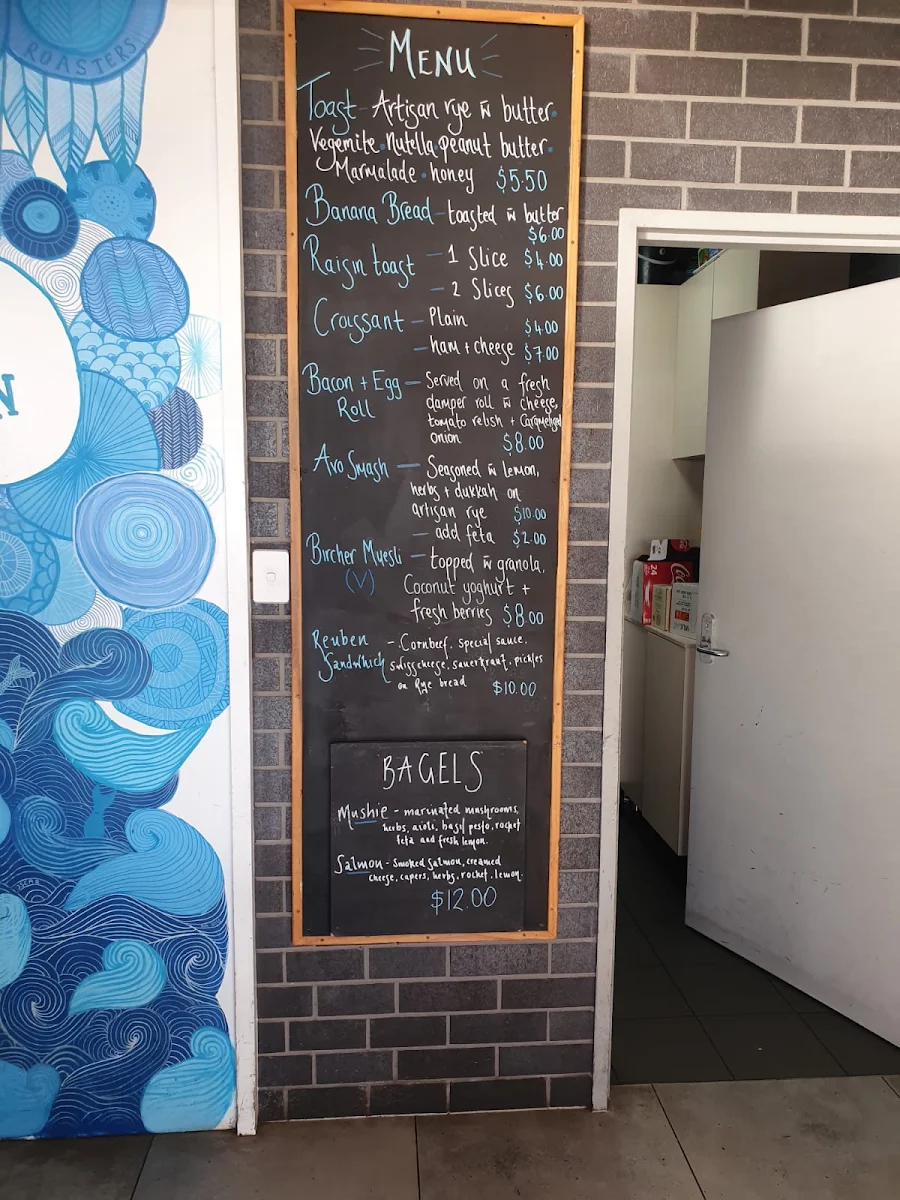 ROASTERS
N
MENU
Toast - Artisan rye w̄ butter.
Vegemite. Nutella. peanut butter.
Marmalade. honey $5.50
Banana Bread - toasted w̄ butter
$6.00
Raisin toast - 1 Slice $4.00
- 2 Slices $6.00
Croissant - Plain $4.00
- ham + cheese $7.00
Bacon + Egg - Served on a fresh
Roll damper roll w̄ cheese,
tomato relish + Caramelised
onion $8.00
Avo Smash - Seasoned w̄ lemon,
herbs + dukkah on
artisan rye $10.00
- add feta $2.00
Bircher Muesli - topped w̄ granola,
(V) Coconut yoghurt +
fresh berries $8.00
Reuben - Cornbeef, special sauce,
Sandwhich swisscheese, sauerkraut, pickles
on Rye bread $10.00
BAGELS
Mushie - marinated mushrooms,
herbs, aioli, basil pesto, rocket
feta and fresh lemon.
Salmon - Smoked Salmon, creamed
cheese, capers, herbs, rocket, lemon.
$12.00
24